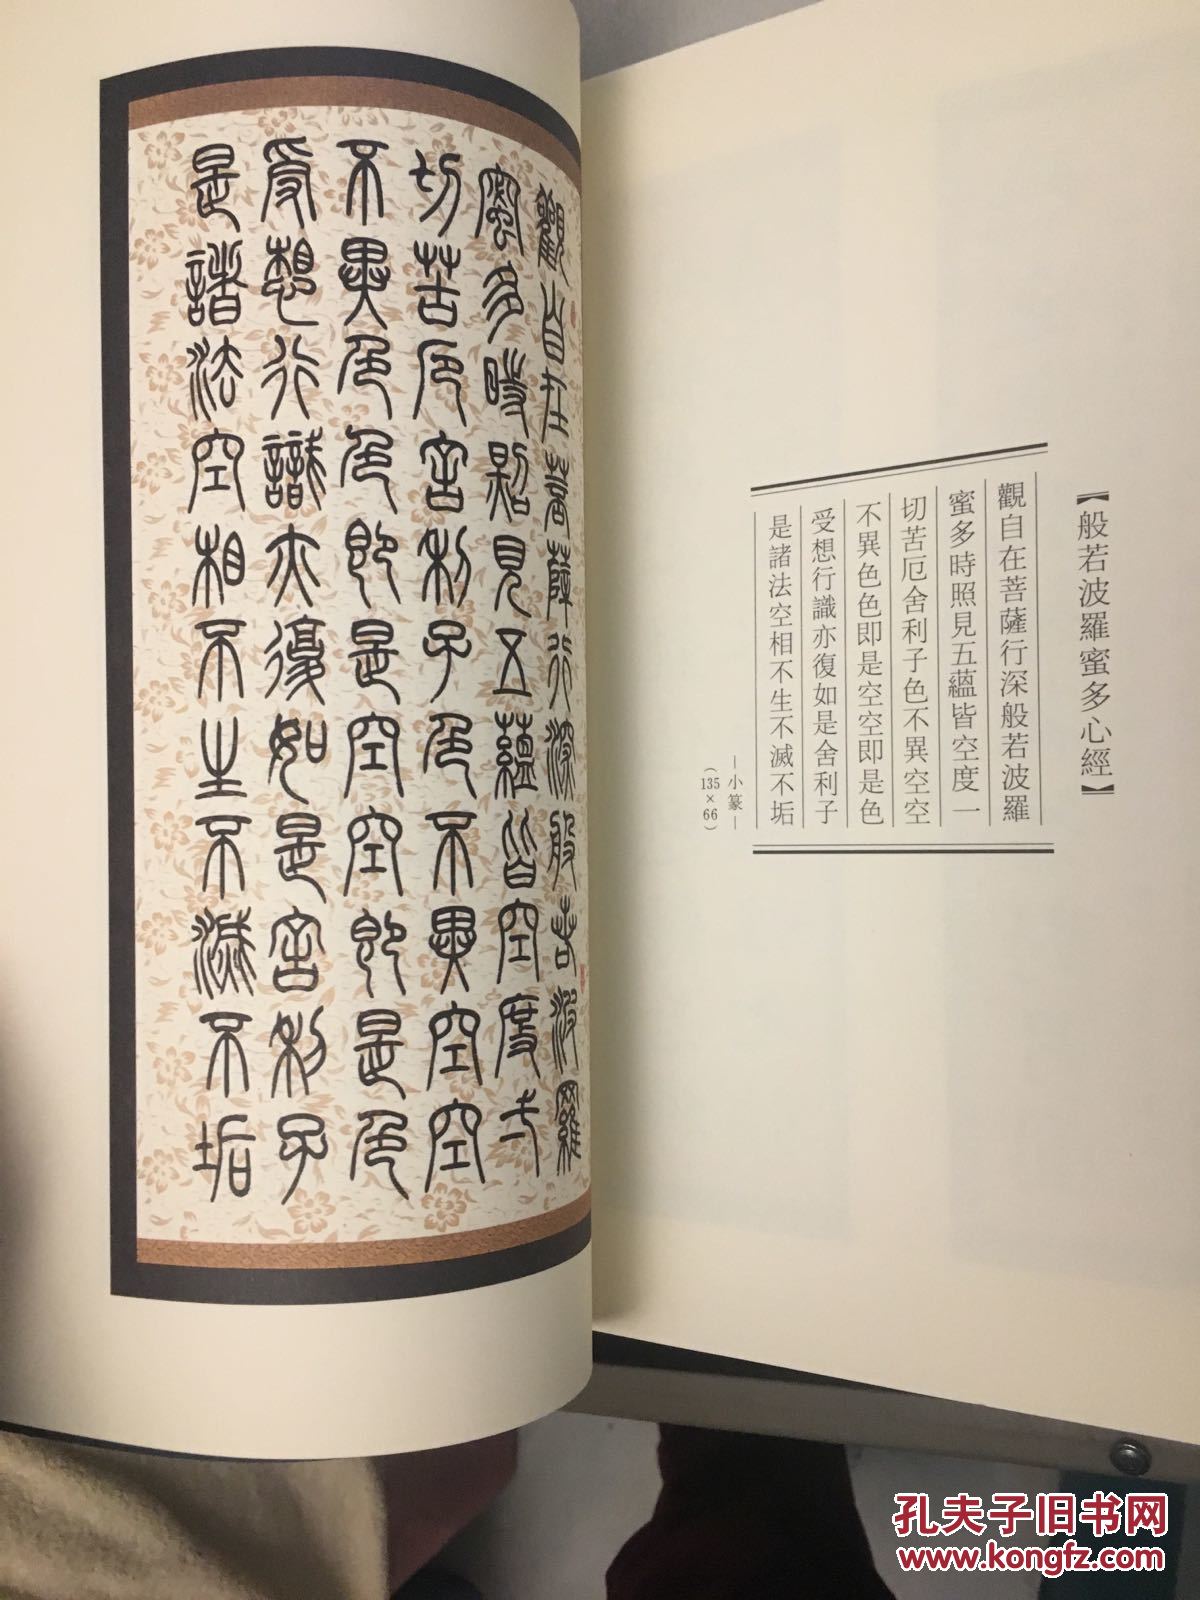 【般若波羅蜜多心經】
觀自在菩薩行深般若波羅
蜜多時照見五蘊皆空度一
切苦厄舍利子色不異空空
不異色色即是空空即是色
受想行識亦復如是舍利子
是諸法空相不生不滅不垢
—小篆—
(135×66)
觀自在菩薩行深般若波羅
蜜多時照見五蘊皆空度一
切苦厄舍利子色不異空空
不異色色即是空空即是色
受想行識亦復如是舍利子
是諸法空相不生不滅不垢
孔夫子旧书网
www.kongfz.com